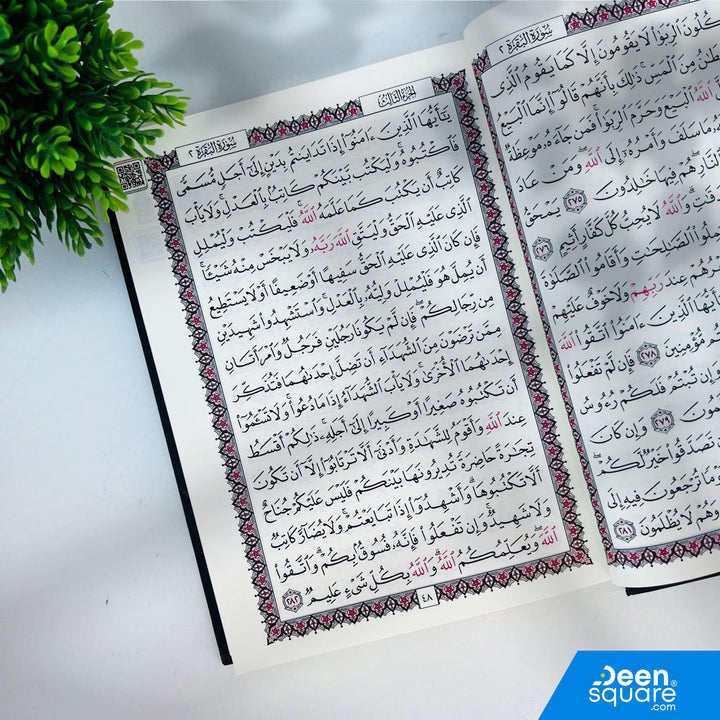 سُورَةُ البَقَرَةِ ٢
ٱلرِّبَوٰاْ لَا يَقُومُونَ إِلَّا كَمَا يَقُومُ ٱلَّذِى
مِنَ ٱلْمَسِّ ۚ ذَٰلِكَ بِأَنَّهُمْ قَالُوٓاْ إِنَّمَا ٱلْبَيْعُ
ٱللَّهُ ٱلْبَيْعَ وَحَرَّمَ ٱلرِّبَوٰاْ ۚ فَمَن جَآءَهُۥ مَوْعِظَةٌ
مَا سَلَفَ وَأَمْرُهُۥٓ إِلَى ٱللَّهِ ۖ وَمَنْ عَادَ
ٱلنَّارِ ۖ هُمْ فِيهَا خَٰلِدُونَ ٢٧٥ يَمْحَقُ
وَٱللَّهُ لَا يُحِبُّ كُلَّ كَفَّارٍ أَثِيمٍ ٢٧٦
ٱلصَّٰلِحَٰتِ وَأَقَامُواْ ٱلصَّلَوٰةَ
عِندَ رَبِّهِمْ وَلَا خَوْفٌ عَلَيْهِمْ
ٱلَّذِينَ ءَامَنُواْ ٱتَّقُواْ ٱللَّهَ
مُّؤْمِنِينَ ٢٧٨ فَإِن لَّمْ تَفْعَلُواْ
تُبْتُمْ فَلَكُمْ رُءُوسُ
٢٧٩ وَإِن كَانَ
تَصَدَّقُواْ خَيْرٌ لَّكُمْ ۖ
تُرْجَعُونَ فِيهِ إِلَى
وَهُمْ لَا يُظْلَمُونَ ٢٨١
الجُزْءُ الثَّالِثُ
سُورَةُ البَقَرَةِ ٢
يَٰٓأَيُّهَا ٱلَّذِينَ ءَامَنُوٓاْ إِذَا تَدَايَنتُم بِدَيْنٍ إِلَىٰٓ أَجَلٍ مُّسَمًّى
فَٱكْتُبُوهُ ۚ وَلْيَكْتُب بَّيْنَكُمْ كَاتِبٌۢ بِٱلْعَدْلِ ۚ وَلَا يَأْبَ
كَاتِبٌ أَن يَكْتُبَ كَمَا عَلَّمَهُ ٱللَّهُ ۚ فَلْيَكْتُبْ وَلْيُمْلِلِ
ٱلَّذِى عَلَيْهِ ٱلْحَقُّ وَلْيَتَّقِ ٱللَّهَ رَبَّهُۥ وَلَا يَبْخَسْ مِنْهُ شَيْـًٔا ۚ
فَإِن كَانَ ٱلَّذِى عَلَيْهِ ٱلْحَقُّ سَفِيهًا أَوْ ضَعِيفًا أَوْ لَا يَسْتَطِيعُ
أَن يُمِلَّ هُوَ فَلْيُمْلِلْ وَلِيُّهُۥ بِٱلْعَدْلِ ۚ وَٱسْتَشْهِدُواْ شَهِيدَيْنِ
مِن رِّجَالِكُمْ ۖ فَإِن لَّمْ يَكُونَا رَجُلَيْنِ فَرَجُلٌ وَٱمْرَأَتَانِ
مِمَّن تَرْضَوْنَ مِنَ ٱلشُّهَدَآءِ أَن تَضِلَّ إِحْدَىٰهُمَا فَتُذَكِّرَ
إِحْدَىٰهُمَا ٱلْأُخْرَىٰ ۚ وَلَا يَأْبَ ٱلشُّهَدَآءُ إِذَا مَا دُعُواْ ۚ وَلَا تَسْـَٔمُوٓاْ
أَن تَكْتُبُوهُ صَغِيرًا أَوْ كَبِيرًا إِلَىٰٓ أَجَلِهِۦ ۚ ذَٰلِكُمْ أَقْسَطُ
عِندَ ٱللَّهِ وَأَقْوَمُ لِلشَّهَٰدَةِ وَأَدْنَىٰٓ أَلَّا تَرْتَابُوٓاْ ۖ إِلَّآ أَن تَكُونَ
تِجَٰرَةً حَاضِرَةً تُدِيرُونَهَا بَيْنَكُمْ فَلَيْسَ عَلَيْكُمْ جُنَاحٌ
أَلَّا تَكْتُبُوهَا ۗ وَأَشْهِدُوٓاْ إِذَا تَبَايَعْتُمْ ۚ وَلَا يُضَآرَّ كَاتِبٌ
وَلَا شَهِيدٌ ۚ وَإِن تَفْعَلُواْ فَإِنَّهُۥ فُسُوقٌۢ بِكُمْ ۗ وَٱتَّقُواْ
ٱللَّهَ ۖ وَيُعَلِّمُكُمُ ٱللَّهُ ۗ وَٱللَّهُ بِكُلِّ شَىْءٍ عَلِيمٌ ٢٨٢
٤٨
Deen
square®
.com